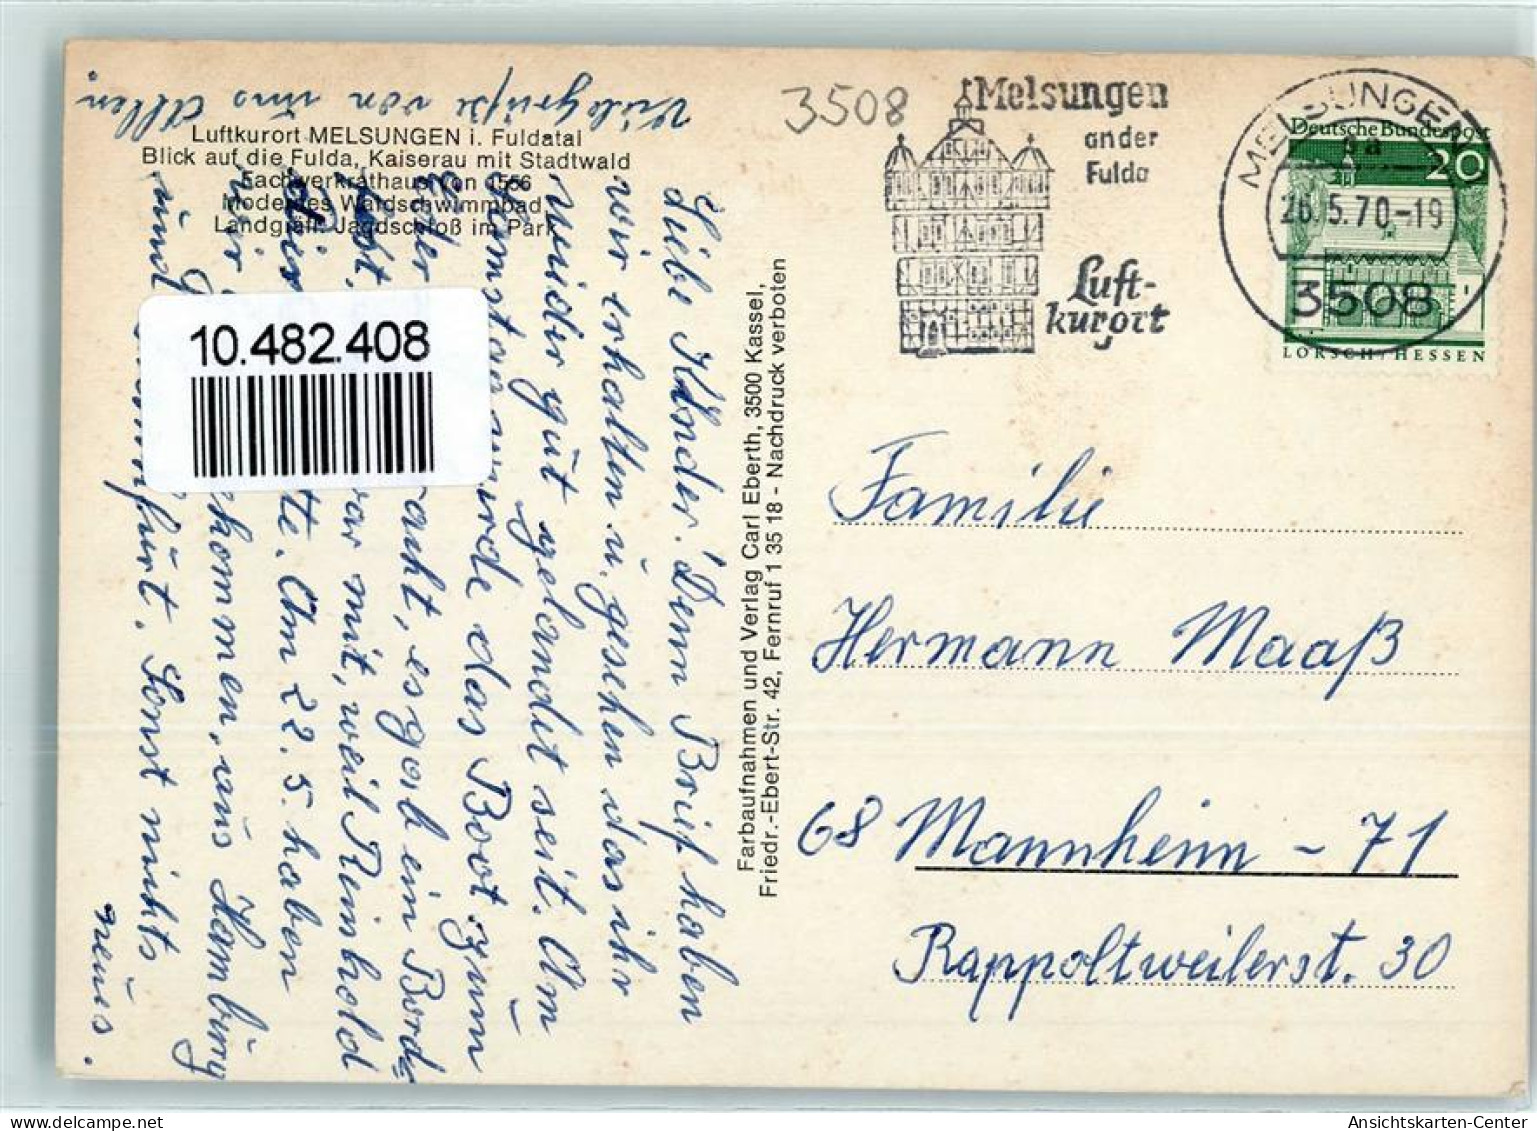 Viele Grüße von uns Allen.
Luftkurort MELSUNGEN i. Fuldatal
Blick auf die Fulda, Kaiserau mit Stadtwald
Fachwerkrathaus von 1556
Modernes Waldschwimmbad
Landgräfl. Jagdschloß im Park
Liebe Kinder! Denn Brief haben
wir erhalten u. gesehen das ihr
wieder gut gelandet seit. Am
wurde das Boot zum
es gab ein Bord=
mit, weil Reinhold
Am 22. 5. haben
kommen, aus Hamburg
und
Sonst nichts
neues.
10.482.408
Farbaufnahmen und Verlag Carl Eberth, 3500 Kassel,
Friedr.-Ebert-Str. 42, Fernruf 1 35 18 - Nachdruck verboten
3508
Melsungen
an der
Fulda
Luft-
kurort
MELSUNGEN
26.5.70-19
3508
Deutsche Bundespost
20
LORSCH/HESSEN
Familie
Hermann Maaß
68 Mannheim - 71
Rappoltweilerst. 30
delcampe.com
Ansichtskarten-Center